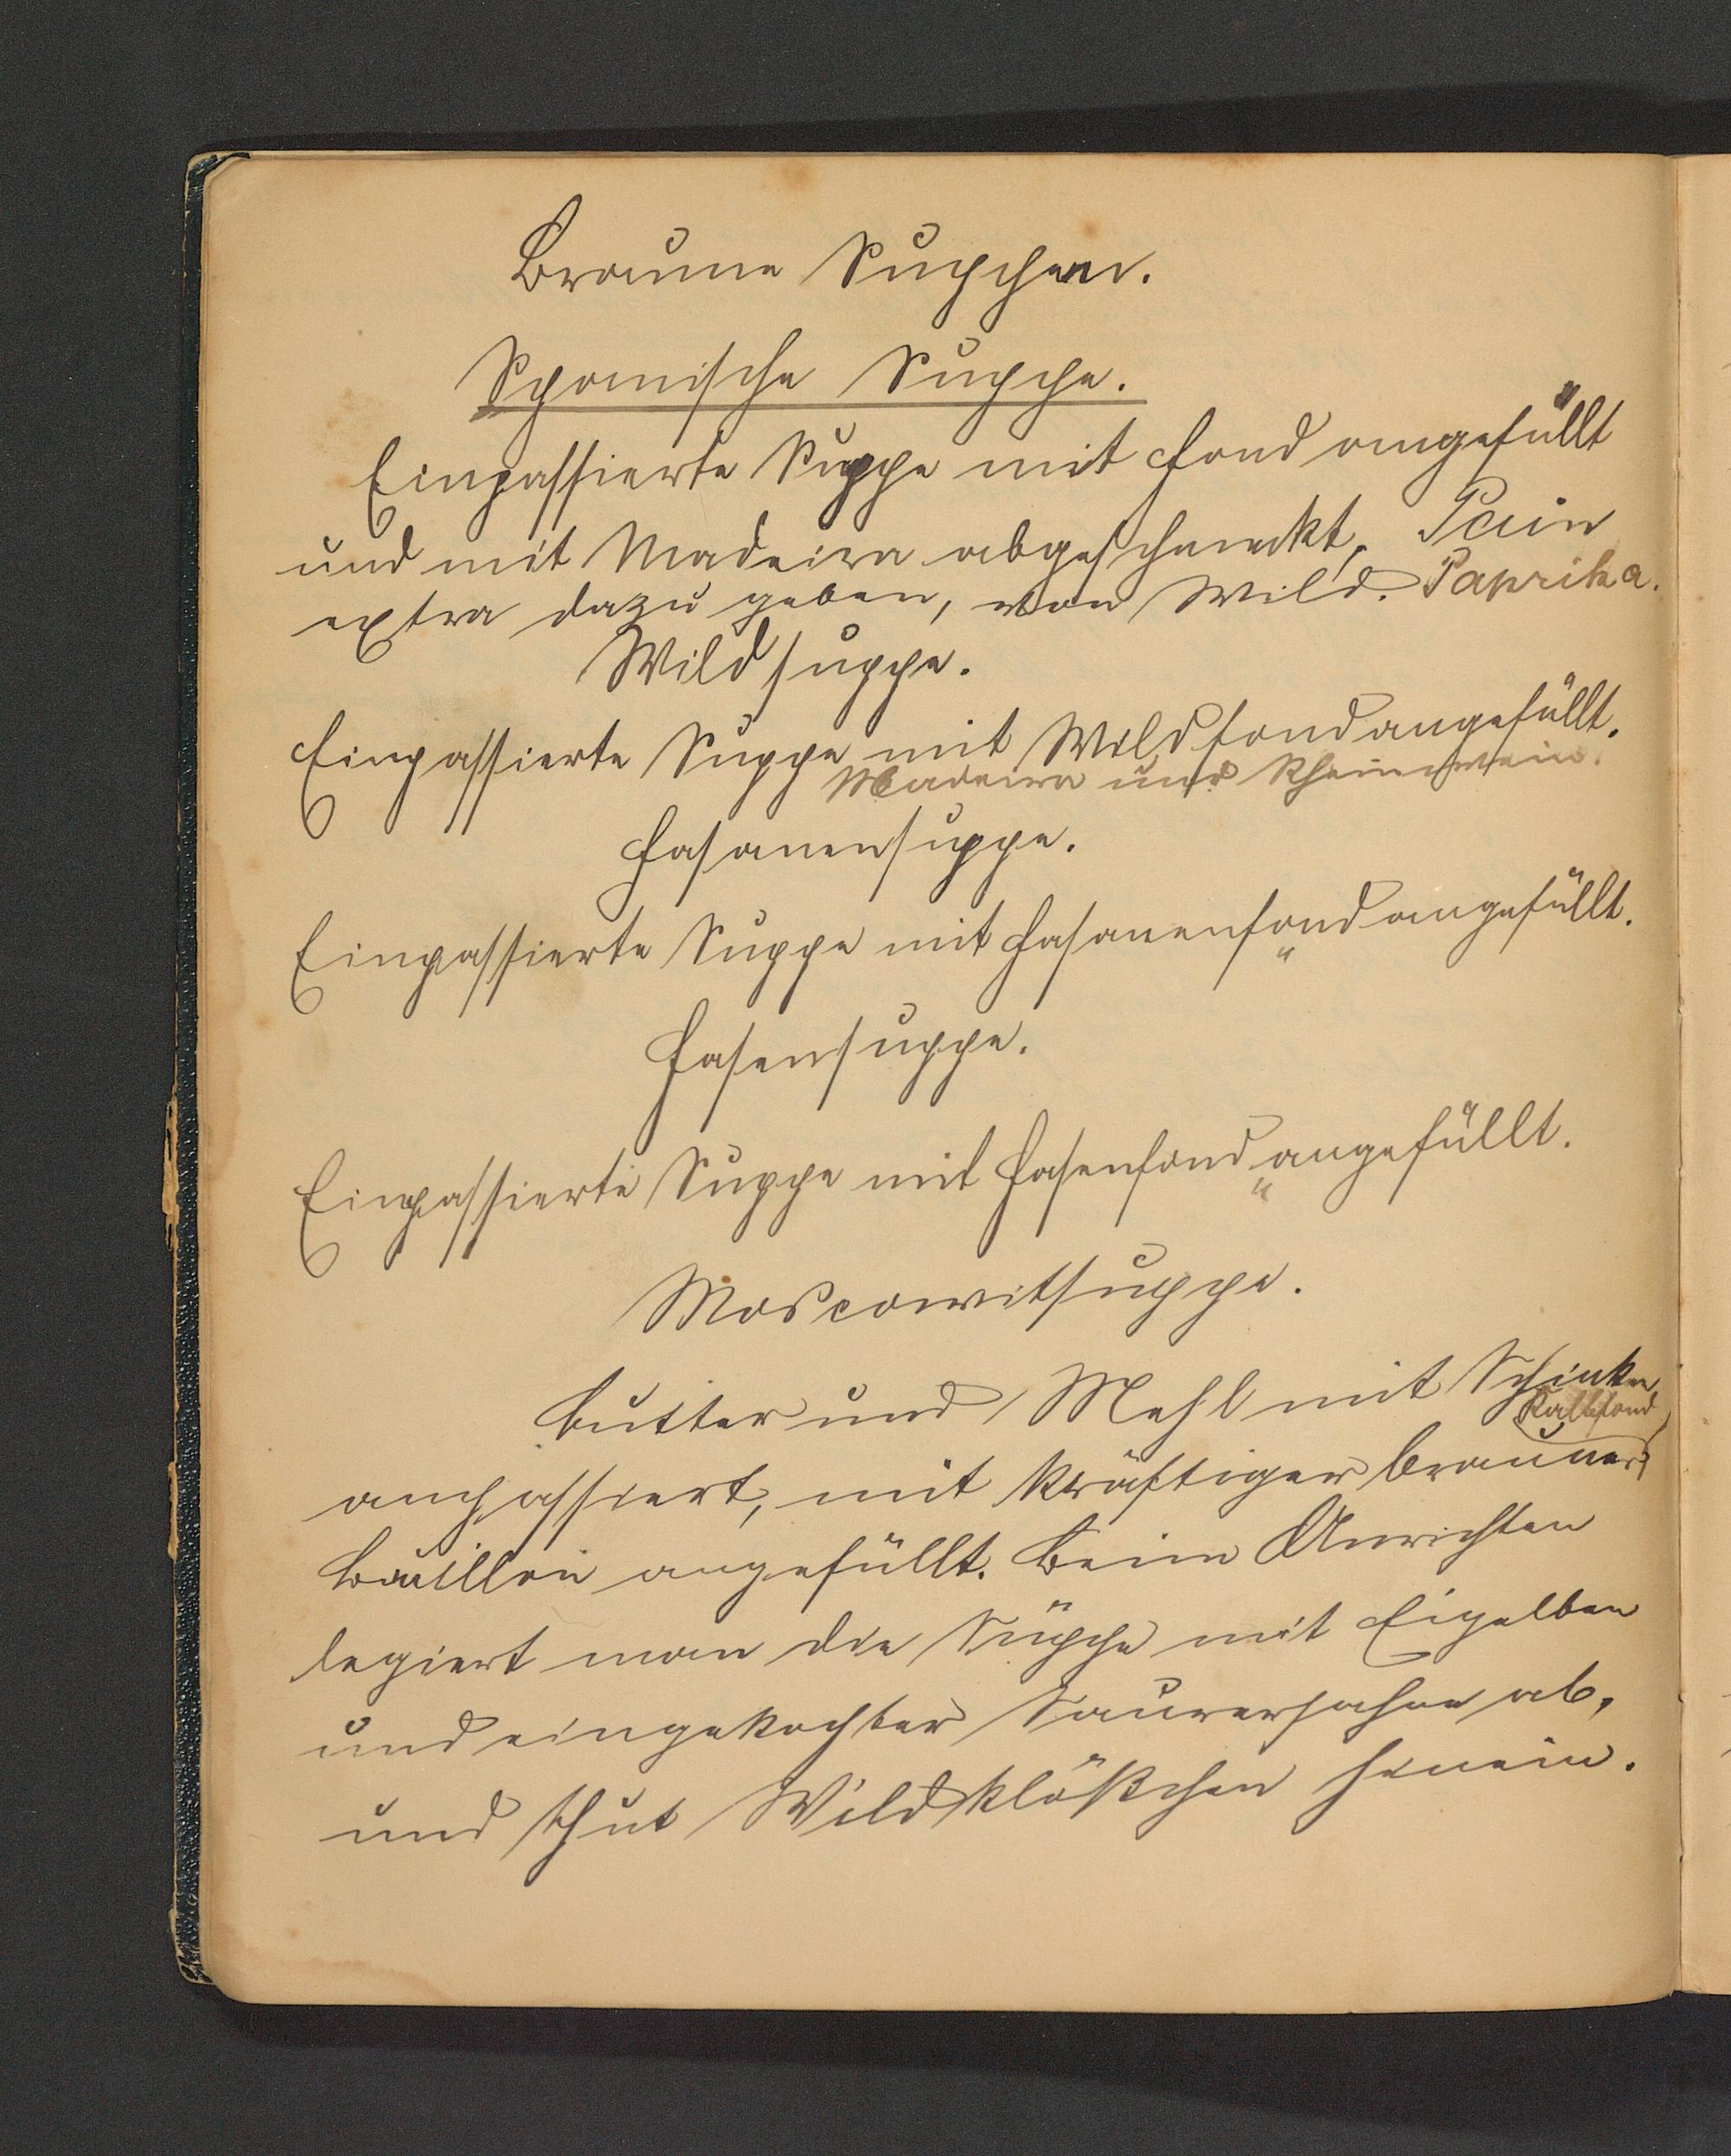 Braune Suppen.
Spanische Suppe.
Einpassierte Suppe mit Fond angefüllt
und mit Madeira abgeschmeckt, Pain
extra dazu geben, von Wild. Paprika.
Wildsuppe.
Einpassierte Suppe mit Wildfond angefüllt.
Madeira und Rheinwein.
Fasanensuppe.
Einpassierte Suppe mit Fasanenfond angefüllt.
"
Hasensuppe.
Einpassierte Suppe mit Hasenfond angefüllt.
"
Moscowitsuppe.
Butter und Mehl mit Schinken
Kalbfond
anpassiert, mit kräftiger brauner
Bouillon angefüllt. Beim Anrichten
legiert man die Suppe mit Eigelben
und eingekochter Saurersahne ab,
und thut Wildklößchen hinein.